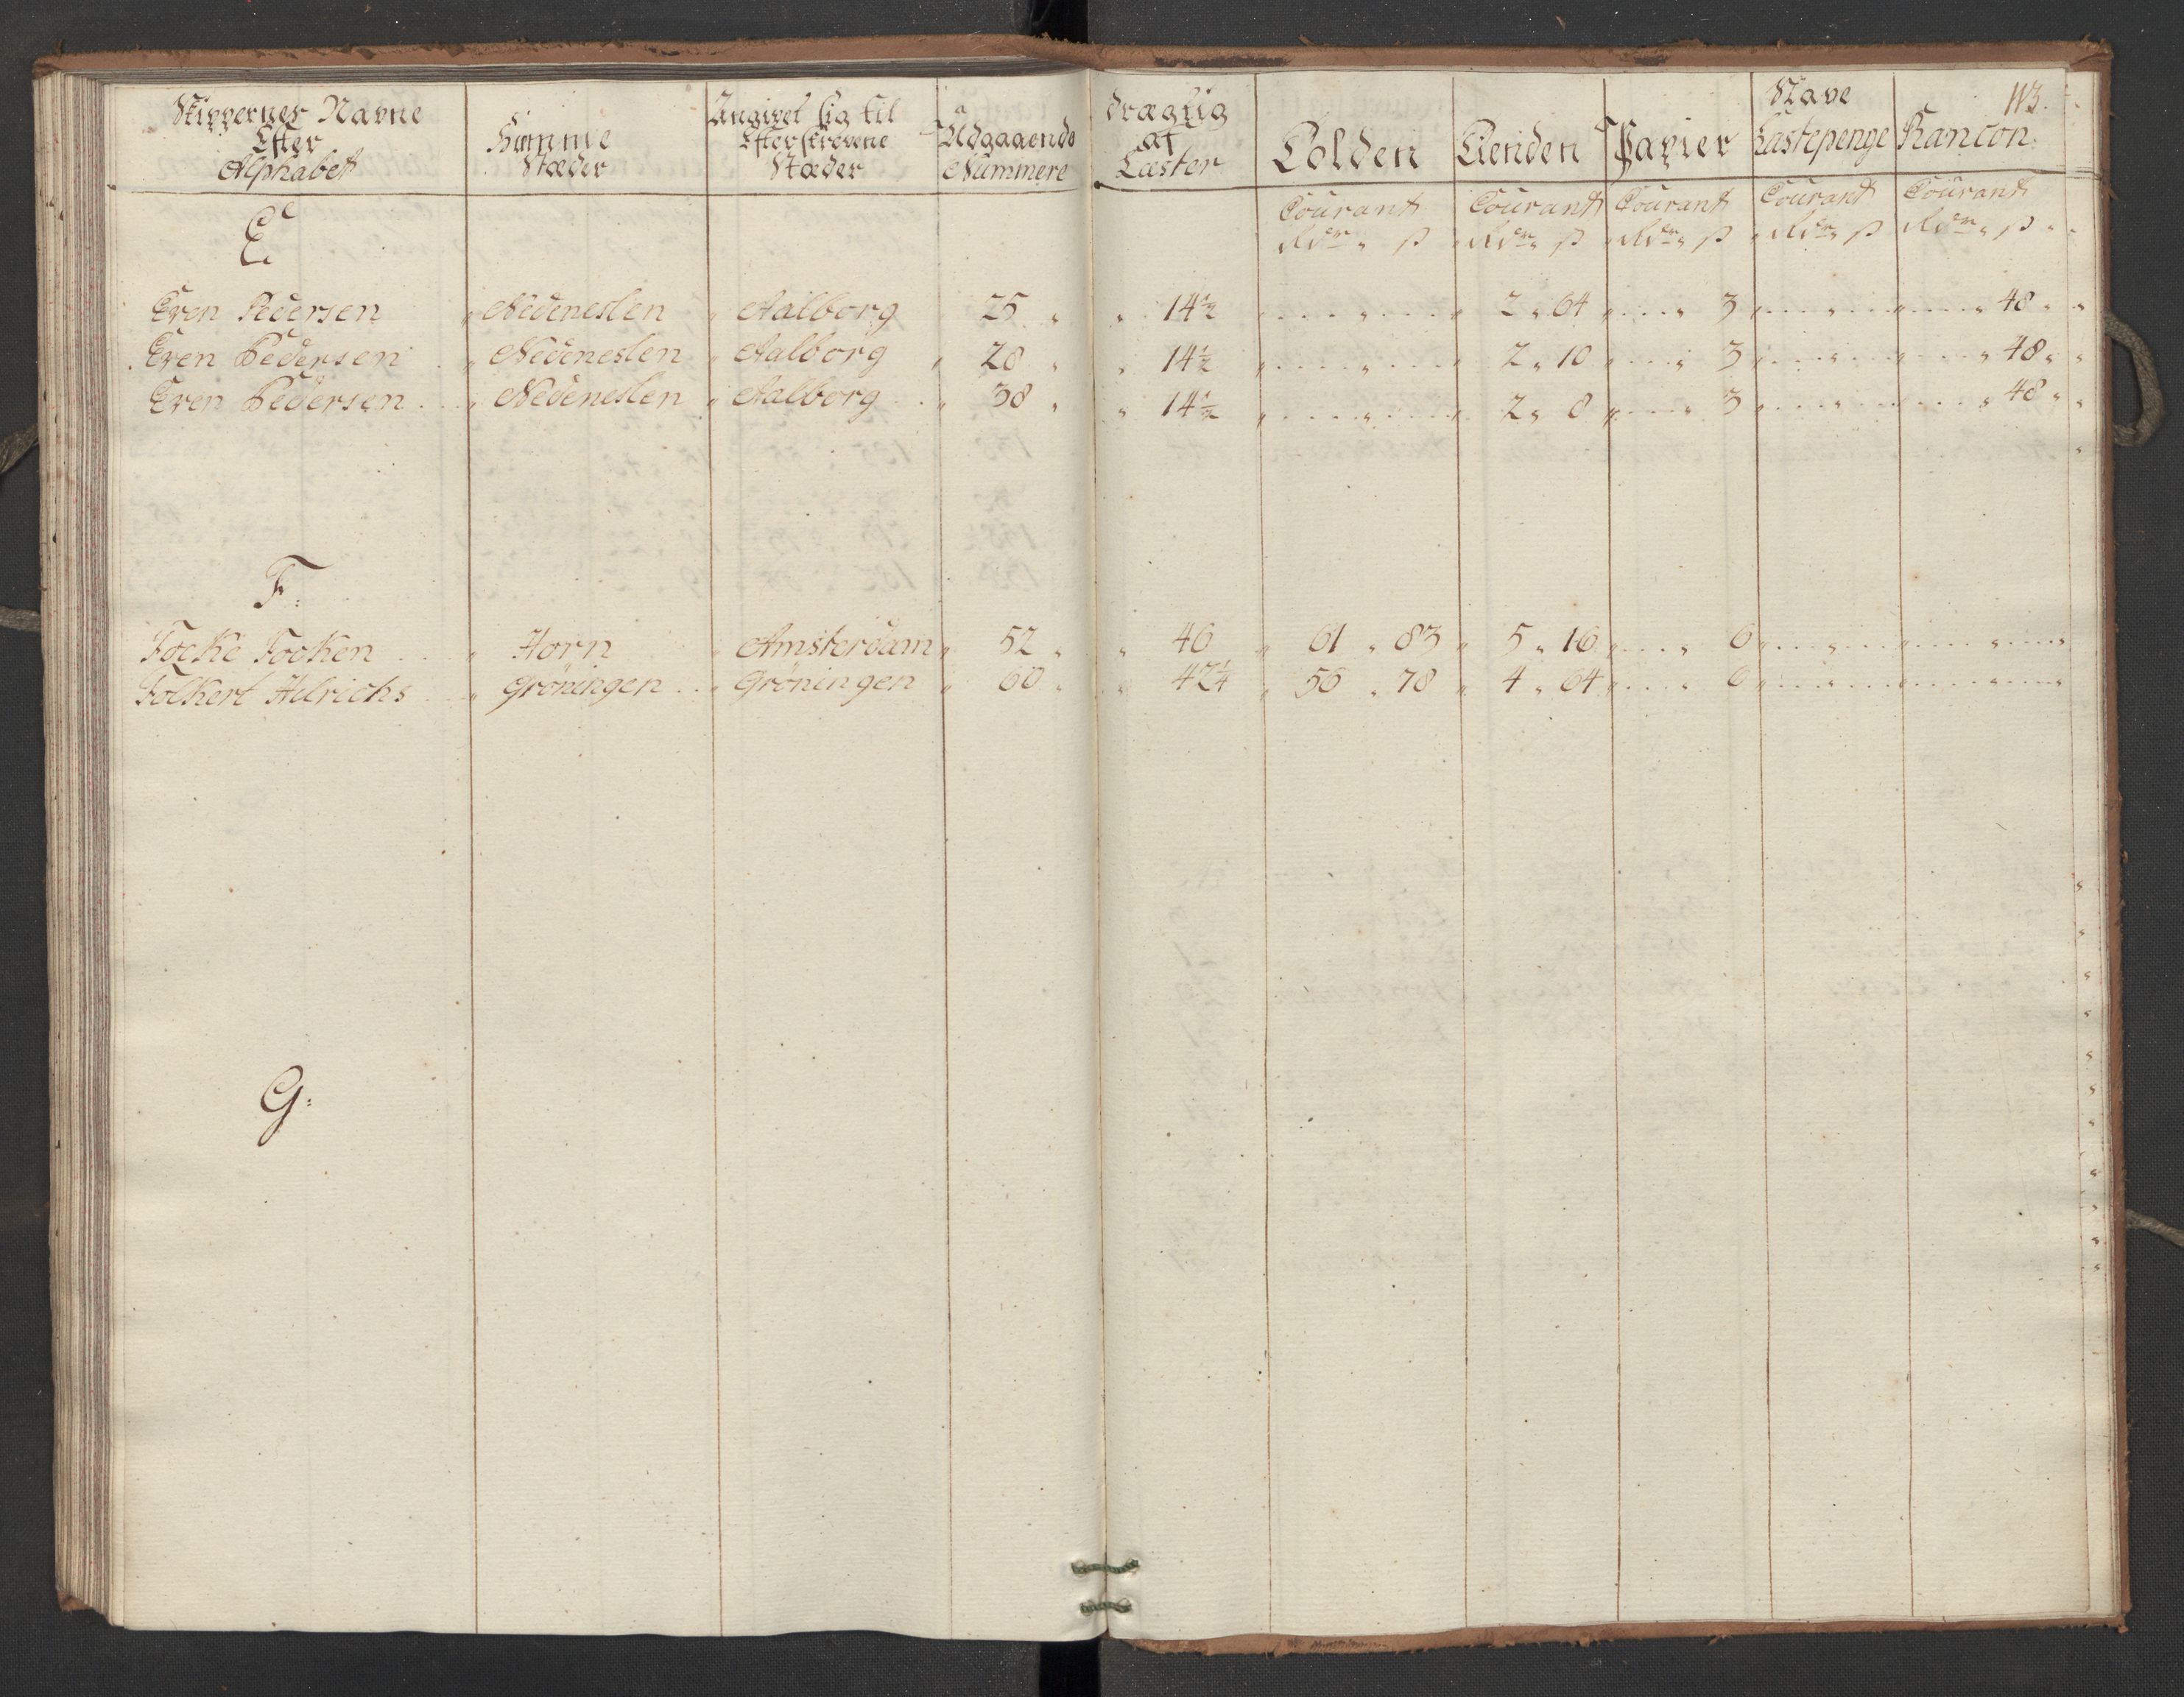 113.
Skippernes Navne Efter Alphabet | Hiemme Stæder | Angivet sig til Efterskrevne Stæder | Udgaaende Nummere | drægtig af Læster | Tolden | Tienden | Papier | Slave Kastepenge | Rancon:
Courant | Courant | Courant | Courant | Courant
Rd.er ß | Rd.er ß | Rd.er ß | Rd.er ß | Rd.er ß
E
Even Pedersen " Nedeneslen " Aalborg 25 " " 14½ " 2 " 64 " 3 " 48 "
Even Pedersen " Nedeneslen " Aalborg " 28 " " 14½ " 2 " 10 " 3 " 48 "
Even Pedersen " Nedeneslen " Aalborg " 38 " " 14½ " 2 " 8 " 3 " 48 "
F:
Focke Focken " Horn Amsterdam " 52 " " 46 " 61 " 83 " 5 " 16 " 6 "
Folkert Hilrichs " Gröningen " Gröningen " 60 " " 42¼ " 56 " 78 " 4 " 64 " 6 "
G: